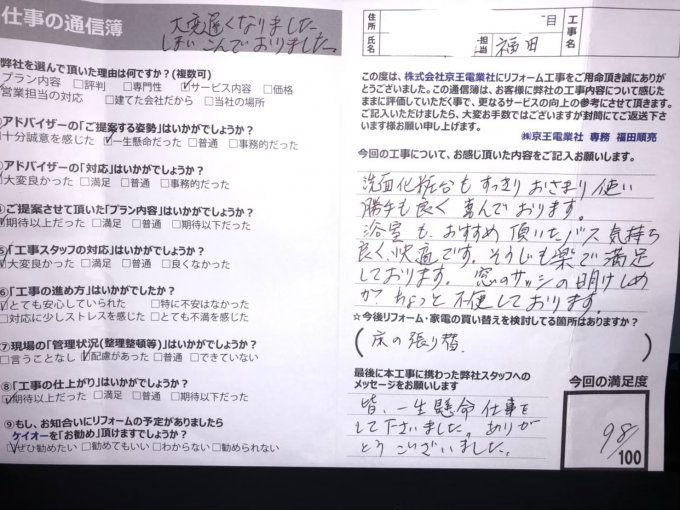 仕事の通信簿
大変遅くなりました
しまいこんでおりました。
弊社を選んで頂いた理由は何ですか?(複数可)
プラン内容 □評判 □専門性 ☑サービス内容 □価格
営業担当の対応 □建てた会社だから □当社の場所
アドバイザーの「ご提案する姿勢」はいかがでしょうか?
十分誠意を感じた ☑一生懸命だった □普通 □事務的だった
アドバイザーの「対応」はいかがでしょうか?
大変良かった □満足 □普通 □事務的だった
ご提案させて頂いた「プラン内容」はいかがでしょうか?
期待以上だった □満足 □普通 □期待以下だった
⑤「工事スタッフの対応」はいかがでしょうか?
☑大変良かった □満足 □普通 □良くなかった
⑥「工事の進め方」はいかがでしたか?
☑とても安心していられた □特に不安はなかった
□対応に少しストレスを感じた □とても不満を感じた
⑦現場の「管理状況(整理整頓等)」はいかがでしょうか?
□言うことなし ☑配慮があった □普通 □できていない
⑧「工事の仕上がり」はいかがでしょうか?
☑期待以上だった □満足 □普通 □期待以下だった
⑨もし、お知合いにリフォームの予定がありましたら
ケイオーを「お勧め」頂けますでしょうか?
☑ぜひ勧めたい □勧めてもいい □わからない □勧められない
住所 目
氏名 担当 福田
工事名
この度は、株式会社京王電業社にリフォーム工事をご用命頂き誠にありが
とうございました。この通信簿は、お客様に弊社の工事内容について感じた
ままに評価していただく事で、更なるサービスの向上の参考にさせて頂きます。
ご記入いただけましたら、大変お手数ではございますが封筒にてご返送下さ
います様お願い申し上げます。
㈱京王電業社 専務 福田順亮
今回の工事について、お感じ頂いた内容をご記入お願いします。
洗面化粧台もすっきりおさまり使い
勝手も良く喜んでおります。
浴室も、おすすめ頂いたバス気持ち
良く、快適です。そうじも楽で満足
しております。窓のサッシの明けしめ
がちょっと不便しております。
☆今後リフォーム・家電の買い替えを検討してる箇所はありますか?
(床の張り替)
最後に本工事に携わった弊社スタッフへの
メッセージをお願いします
皆、一生懸命仕事を
して下さいました。ありが
とうございました。
今回の満足度
98/100